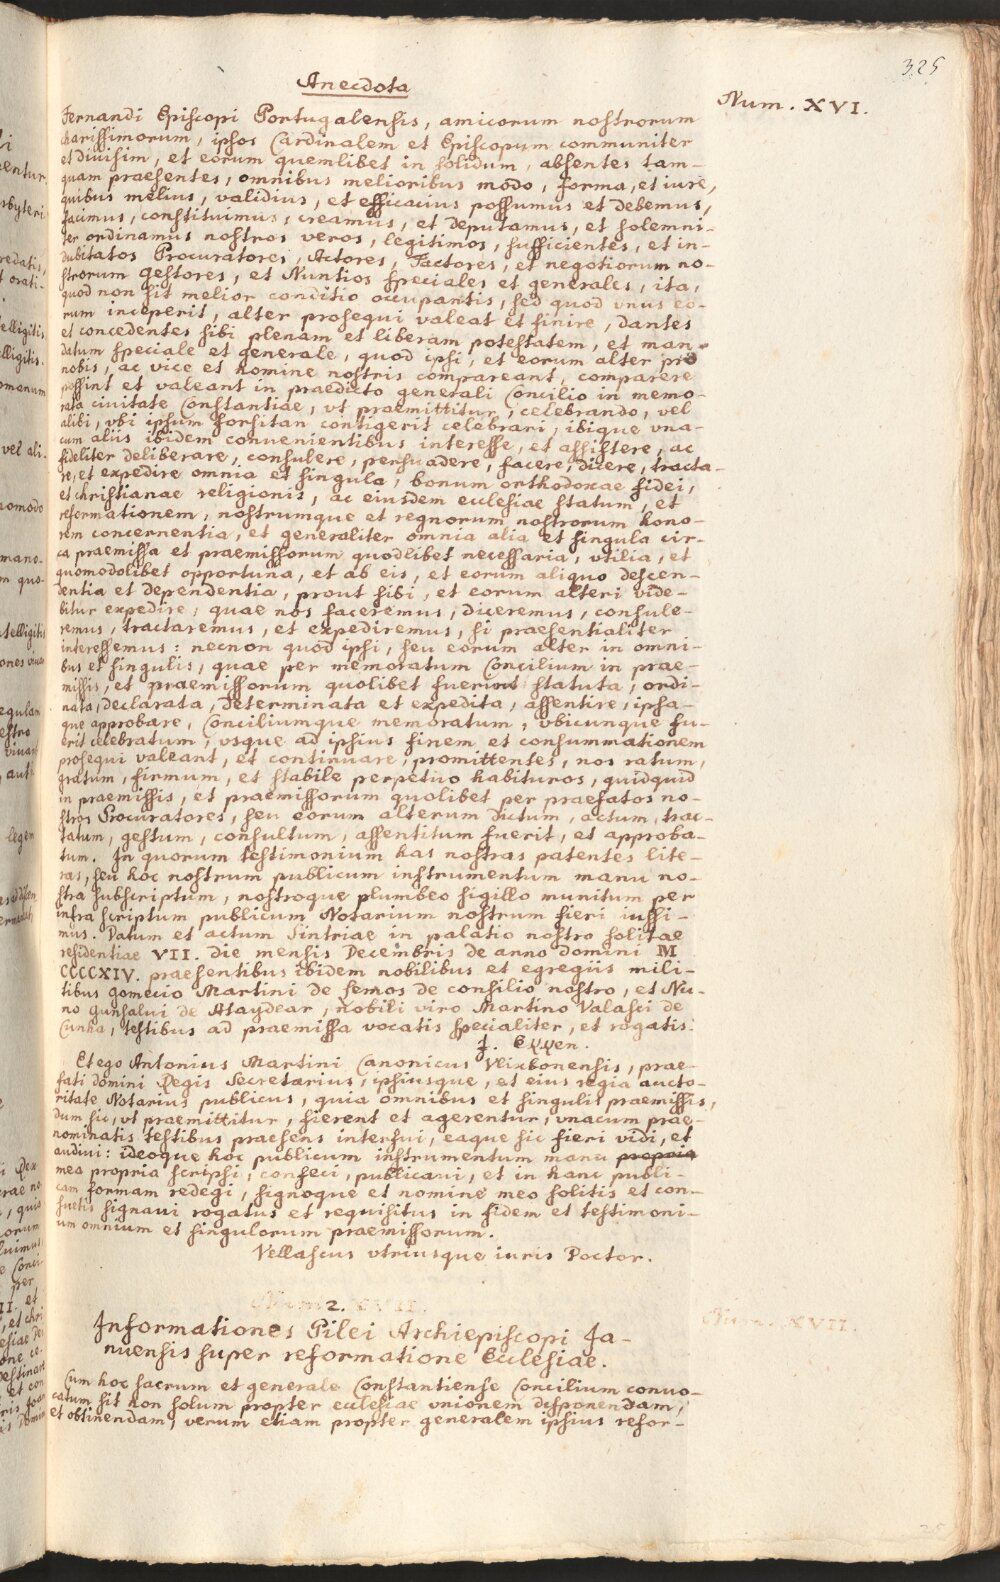 325
Anecdota
Num. XVI.
Fernandi Episcopi Portugalensis, amicorum nostrorum
charissimorum, ipsos Cardinalem et Episcopum communiter
et diuisim, et eorum quemlibet in solidum, absentes tam-
quam praesentes, omnibus melioribus modo, forma, et iure,
quibus melius, validius, et efficacius possumus et debemus,
facimus, constituimus, creamus, et deputamus, et solemni-
ter ordinamus nostros veros, legitimos, sufficientes, et in-
dubitatos Procuratores, Actores, Factores, et negotiorum no-
strorum gestores, et Nuntios speciales et generales, ita,
quod non sit melior conditio occupantis, sed quod vnus eo-
rum inceperit, alter prosequi valeat et finire, dantes
et concedentes sibi plenam et liberam potestatem, et man-
datum speciale et generale, quod ipsi, et eorum alter pro
nobis, ac vice et nomine nostris compareant, comparere
possint et valeant in praedicto generali Concilio in memo-
rata ciuitate Constantiae, vt praemittitur, celebrando, vel
alibi, vbi ipsum forsitan contigerit celebrari, ibique vna-
cum aliis ibidem conuenientibus interesse, et assistere, ac
fideliter deliberare, consulere, persuadere, facere, dicere, tracta-
re, et expedire omnia et singula, bonum orthodoxae fidei,
et christianae religionis, ac eiusdem ecclesiae statum, et
reformationem, nostrumque et regnorum nostrorum hono-
rem concernentia, et generaliter omnia alia et singula cir-
ca praemissa et praemissorum quodlibet necessaria, vtilia, et
quomodolibet opportuna, et ab eis, et eorum aliquo descen-
dentia et dependentia, prout sibi, et eorum alteri vide-
bitur expedire, quae nos faceremus, diceremus, consule-
remus, tractaremus, et expediremus, si praesentialiter
interessemus: necnon quod ipsi, seu eorum alter in omni-
bus et singulis, quae per memoratum Concilium in prae-
missis, et praemissorum quolibet fuerint statuta, ordi-
nata, declarata, determinata et expedita, assentire, ipsa-
que approbare, Conciliumque memoratum, vbicunque fu-
erit celebratum, vsque ad ipsius finem et consummationem
prosequi valeant, et continuare, promittentes, nos ratum,
gratum, firmum, et stabile perpetuo habituros, quidquid
in praemissis, et praemissorum quolibet per praefatos no-
stros Procuratores, seu eorum alterum dictum, actum, trac-
tatum, gestum, consultum, assentitum fuerit, et approba-
tum. In quorum testimonium has nostras patentes lite-
ras, seu hoc nostrum publicum instrumentum manu no-
stra subscriptum, nostroque plumbeo sigillo munitum per
infra scriptum publicum Notarium nostrum fieri iussi-
mus. Datum et actum Sintriae in palatio nostro solitae
residentiae VII. die mensis Decembris de anno domini M
CCCCXIV. praesentibus ibidem nobilibus et egregiis mili-
tibus gomecio Martini de semos de consilio nostro, et Nu-
no gunsalui de Ataydear, nobili viro Martino Valasci de
Cunha, testibus ad praemissa vocatis specialiter, et rogatis.
Et ego Antonius Martini Canonicus Vlixbonensis, prae-
fati domini Regis Secretarius, ipsiusque, et eius regia aucto-
ritate Notarius publicus, quia omnibus et singulis praemissis,
dum sic, vt praemittitur, fierent et agerentur, vnacum prae-
nominatis testibus praesens interfui, eaque sic fieri vidi, et
audiui: ideoque hoc publicum instrumentum manu propria
mea propria scripsi, confeci, publicaui, et in hanc publi
cam formam redegi, signoque et nomine meo solitis et con-
suetis signaui rogatus et requisitus in fidem et testimoni-
um omnium et singulorum praemissorum.
Vellascus vtriusque iuris Doctor.
2.
Num. XVII.
Informationes Pilei Archiepiscopi Ja-
nuensis super reformatione Ecclesiae.
Cum hoc sacrum et generale Constantiense Concilium conuo-
catum sit non solum propter ecclesiae vnionem disponendam,
et obtinendam, verum etiam propter generalem ipsius refor-